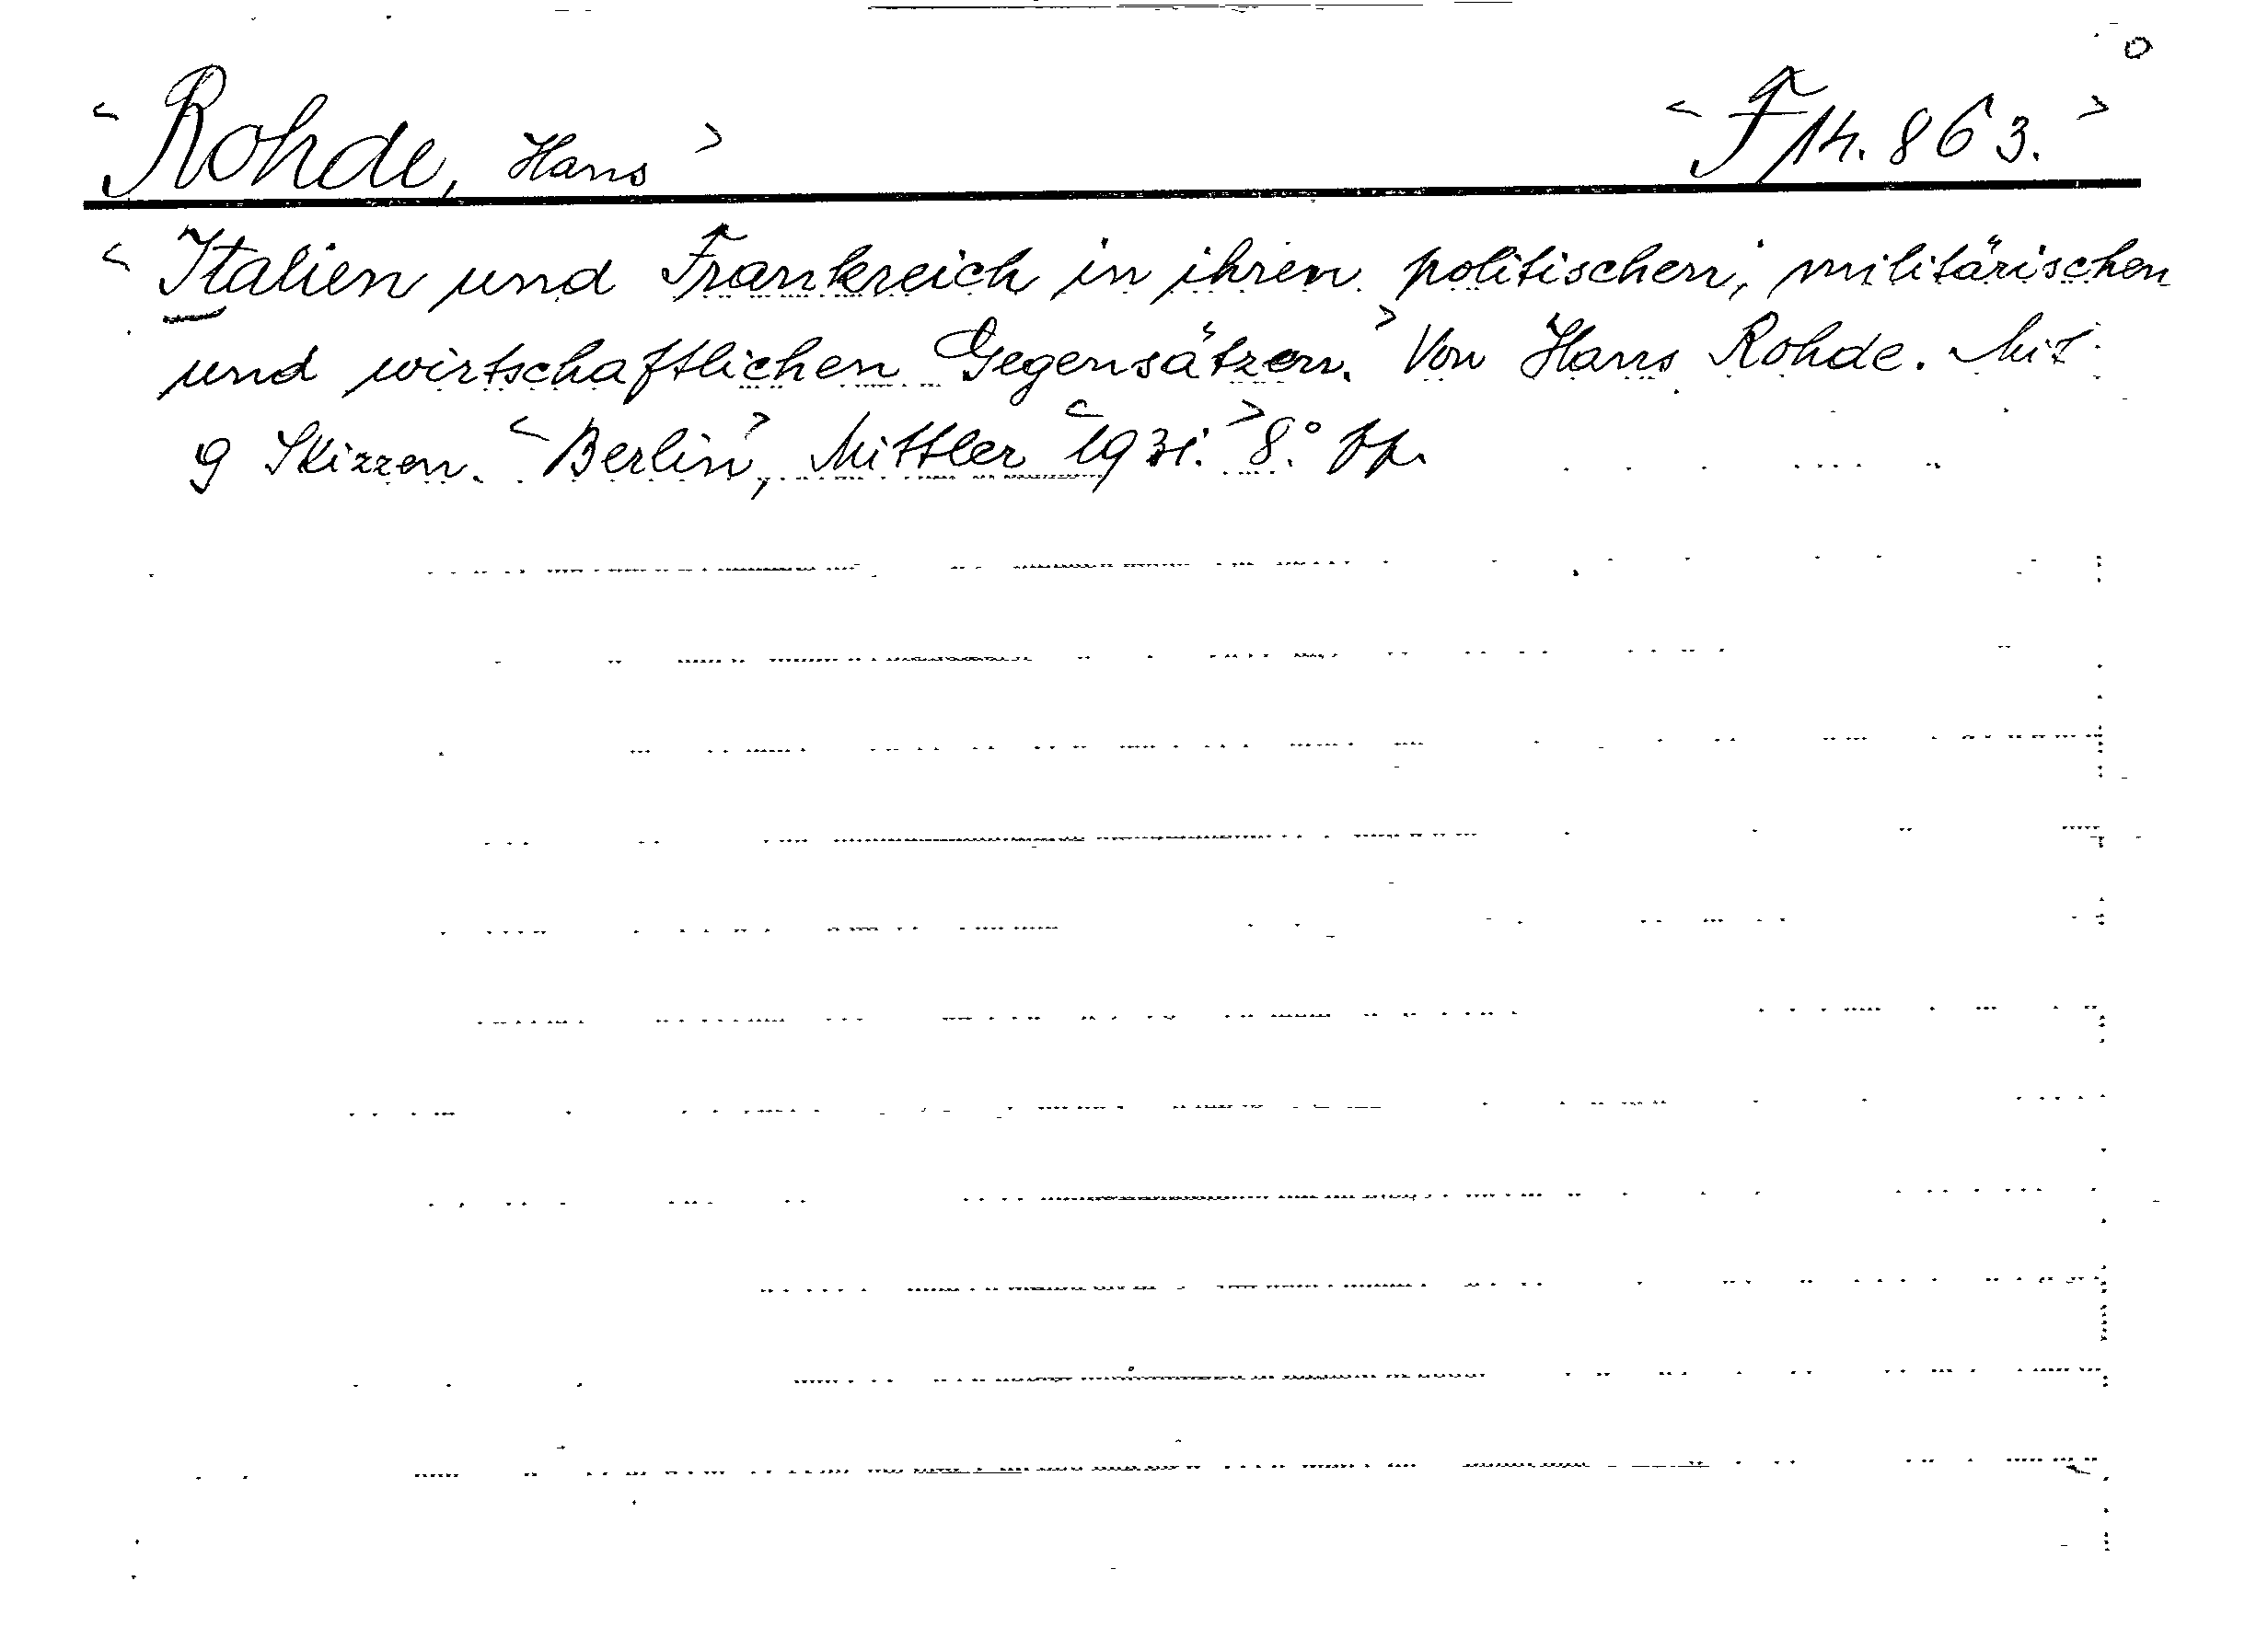 <Rohde, Hans> <F 14.863.>
<Italien und Frankreich in ihren politischen, militärischen
und wirtschaftlichen Gegensätzen.> Von Hans Rohde. Mit
9 Skizzen. <Berlin>, Mittler <1931.> 8.°